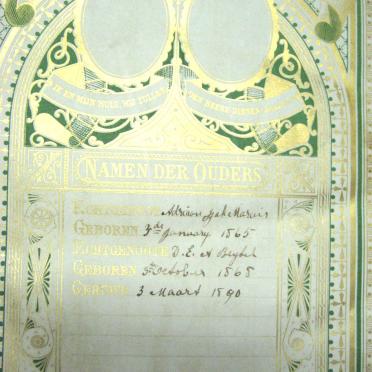 IK EN MIJN HUIS, WIJ ZULLEN DEN HEERE DIENEN
NAMEN DER OUDERS
ECHTGENOOT Adriaan Marais
GEBOREN 3de January 1865
ECHTGENOOTE D. E. A
GEBOREN October 1868
GETROUWD 3 Maart 1890